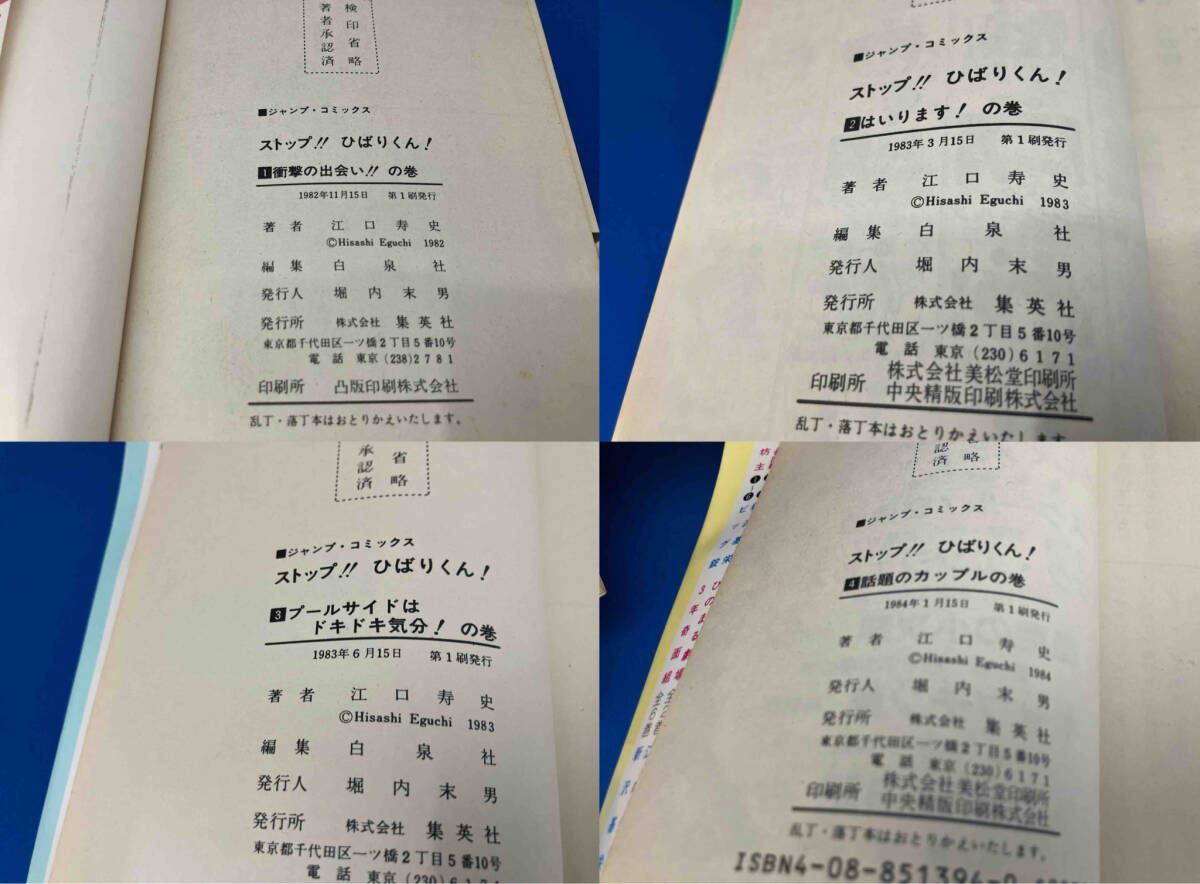 検印省略
著者承認済
■ジャンプ・コミックス
ストップ!! ひばりくん!
1衝撃の出会い!! の巻
1982年11月15日 第1刷発行
著者 江口寿史
©Hisashi Eguchi 1982
編集 白泉社
発行人 堀内末男
発行所 株式会社 集英社
東京都千代田区一ツ橋2丁目5番10号
電話 東京(238)2781
印刷所 凸版印刷株式会社
乱丁・落丁本はおとりかえいたします。
■ジャンプ・コミックス
ストップ!! ひばりくん!
2はいります! の巻
1983年3月15日 第1刷発行
著者 江口寿史
©Hisashi Eguchi 1983
編集 白泉社
発行人 堀内末男
発行所 株式会社 集英社
東京都千代田区一ツ橋2丁目5番10号
電話 東京(230)6171
印刷所 株式会社美松堂印刷所
中央精版印刷株式会社
乱丁・落丁本はおとりかえいたします
省略
承認済
■ジャンプ・コミックス
ストップ!! ひばりくん!
3プールサイドは
ドキドキ気分! の巻
1983年6月15日 第1刷発行
著者 江口寿史
©Hisashi Eguchi 1983
編集 白泉社
発行人 堀内末男
発行所 株式会社 集英社
東京都千代田区一ツ橋2丁目5番10号
電話 東京(230)6171
坊主
ひのまる劇場
3年奇面組 全6巻
略
認済
■ジャンプ・コミックス
ストップ!! ひばりくん!
4話題のカップルの巻
1984年1月15日 第1刷発行
著者 江口寿史
©Hisashi Eguchi 1984
発行人 堀内末男
発行所 株式会社 集英社
東京都千代田区一ツ橋2丁目5番10号
電話 東京(230)6171
印刷所 株式会社美松堂印刷所
中央精版印刷株式会社
乱丁・落丁本はおとりかえいたします。
ISBN4-08-851394-0